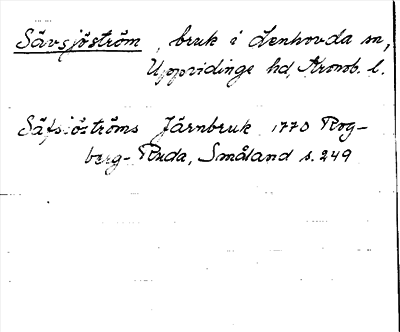 Sävsjöström, bruk i Lenhovda sn,
Uppvidinge hd, Kronob. l.
Säfsjöströms Järnbruk 1770 Rog-
berg-Ruda, Småland s. 249